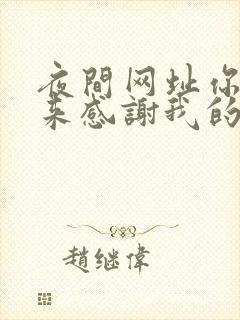 夜間网址你
来感謝我的
趙继偉